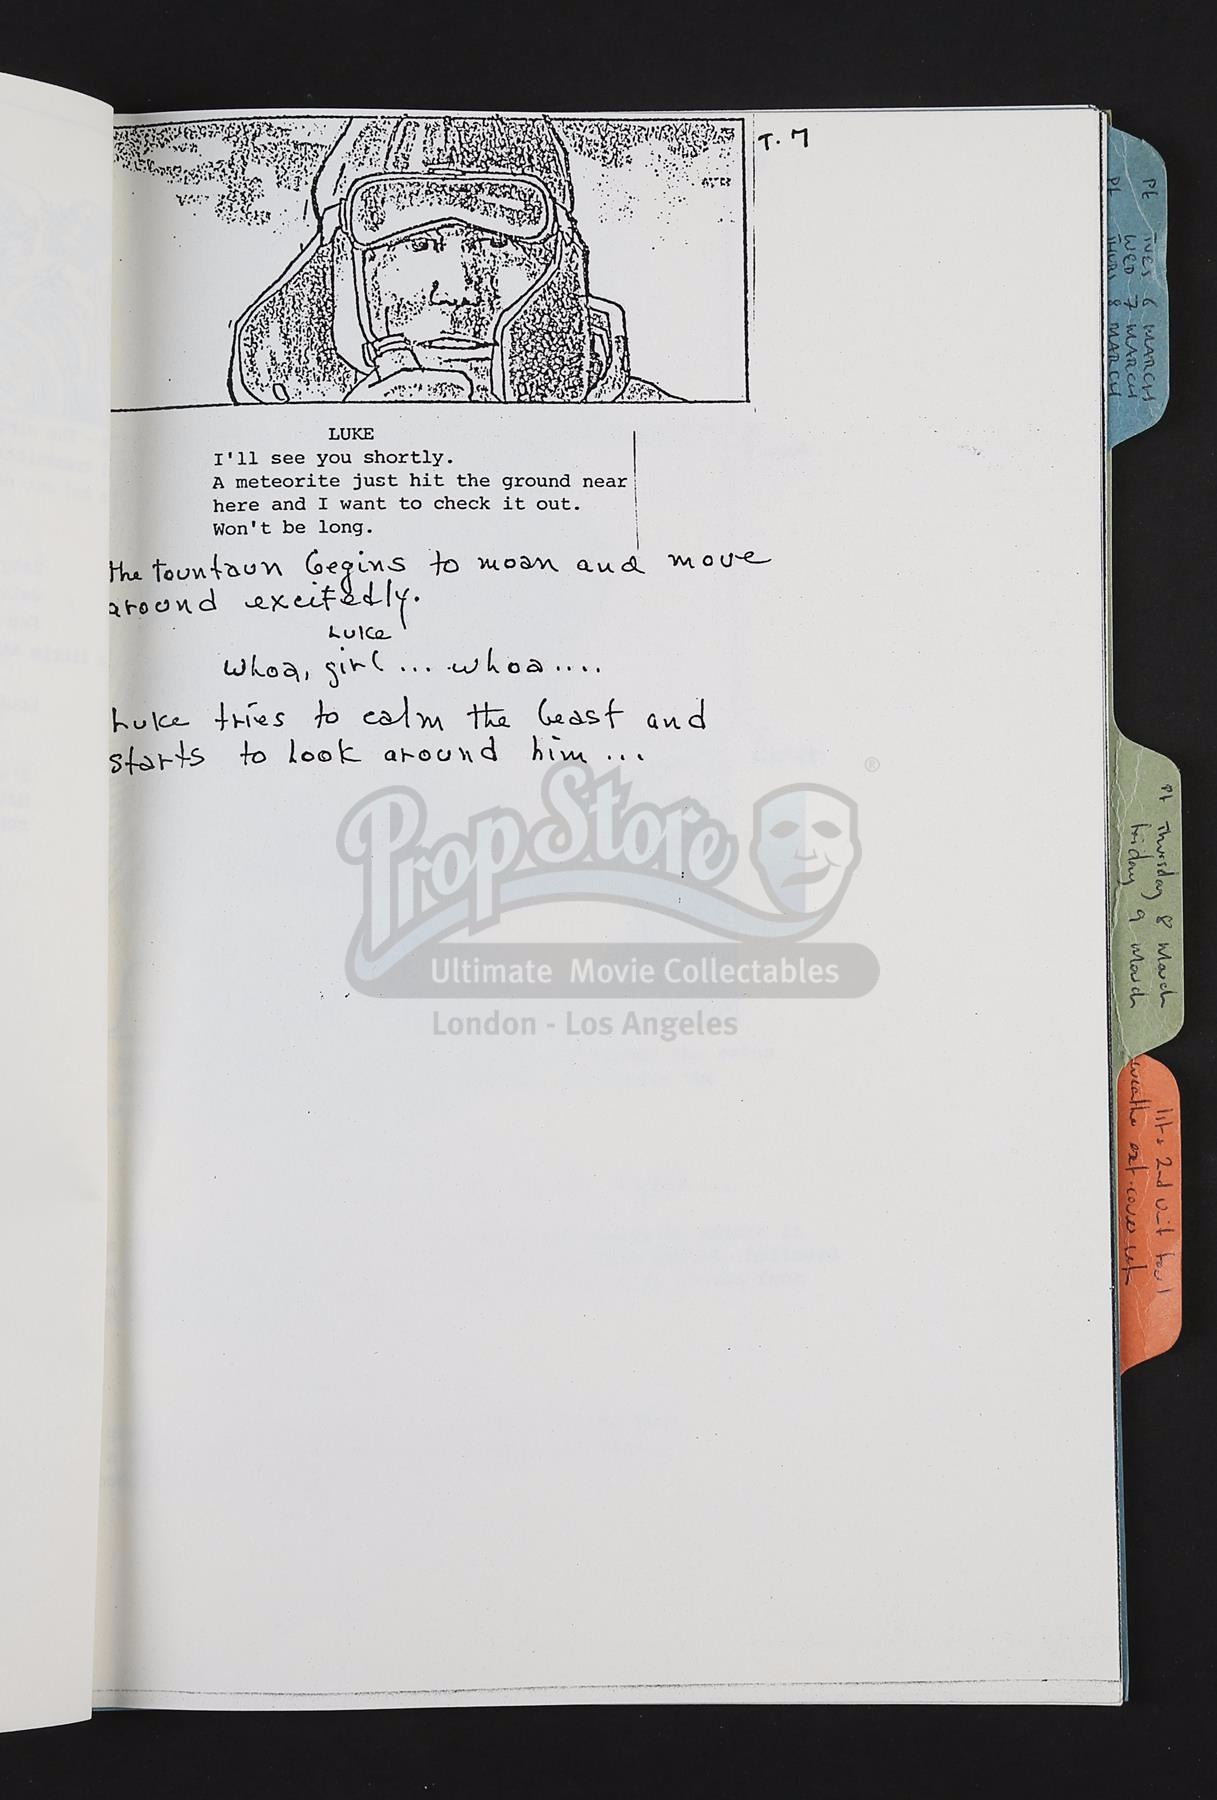 T. 7
LUKE
I'll see you shortly.
A meteorite just hit the ground near
here and I want to check it out.
Won't be long.
the tountaun begins to moan and move
around excitedly.
Luke
whoa, girl... whoa....
Luke tries to calm the beast and
starts to look around him...
PropStore ®
Ultimate Movie Collectables
London - Los Angeles
Pt TUES 6 MARCH
WED 7 MARCH
Pt THURS 8 MARCH
Pt Thursday 8 March
Friday 9 March
2nd unit
weather